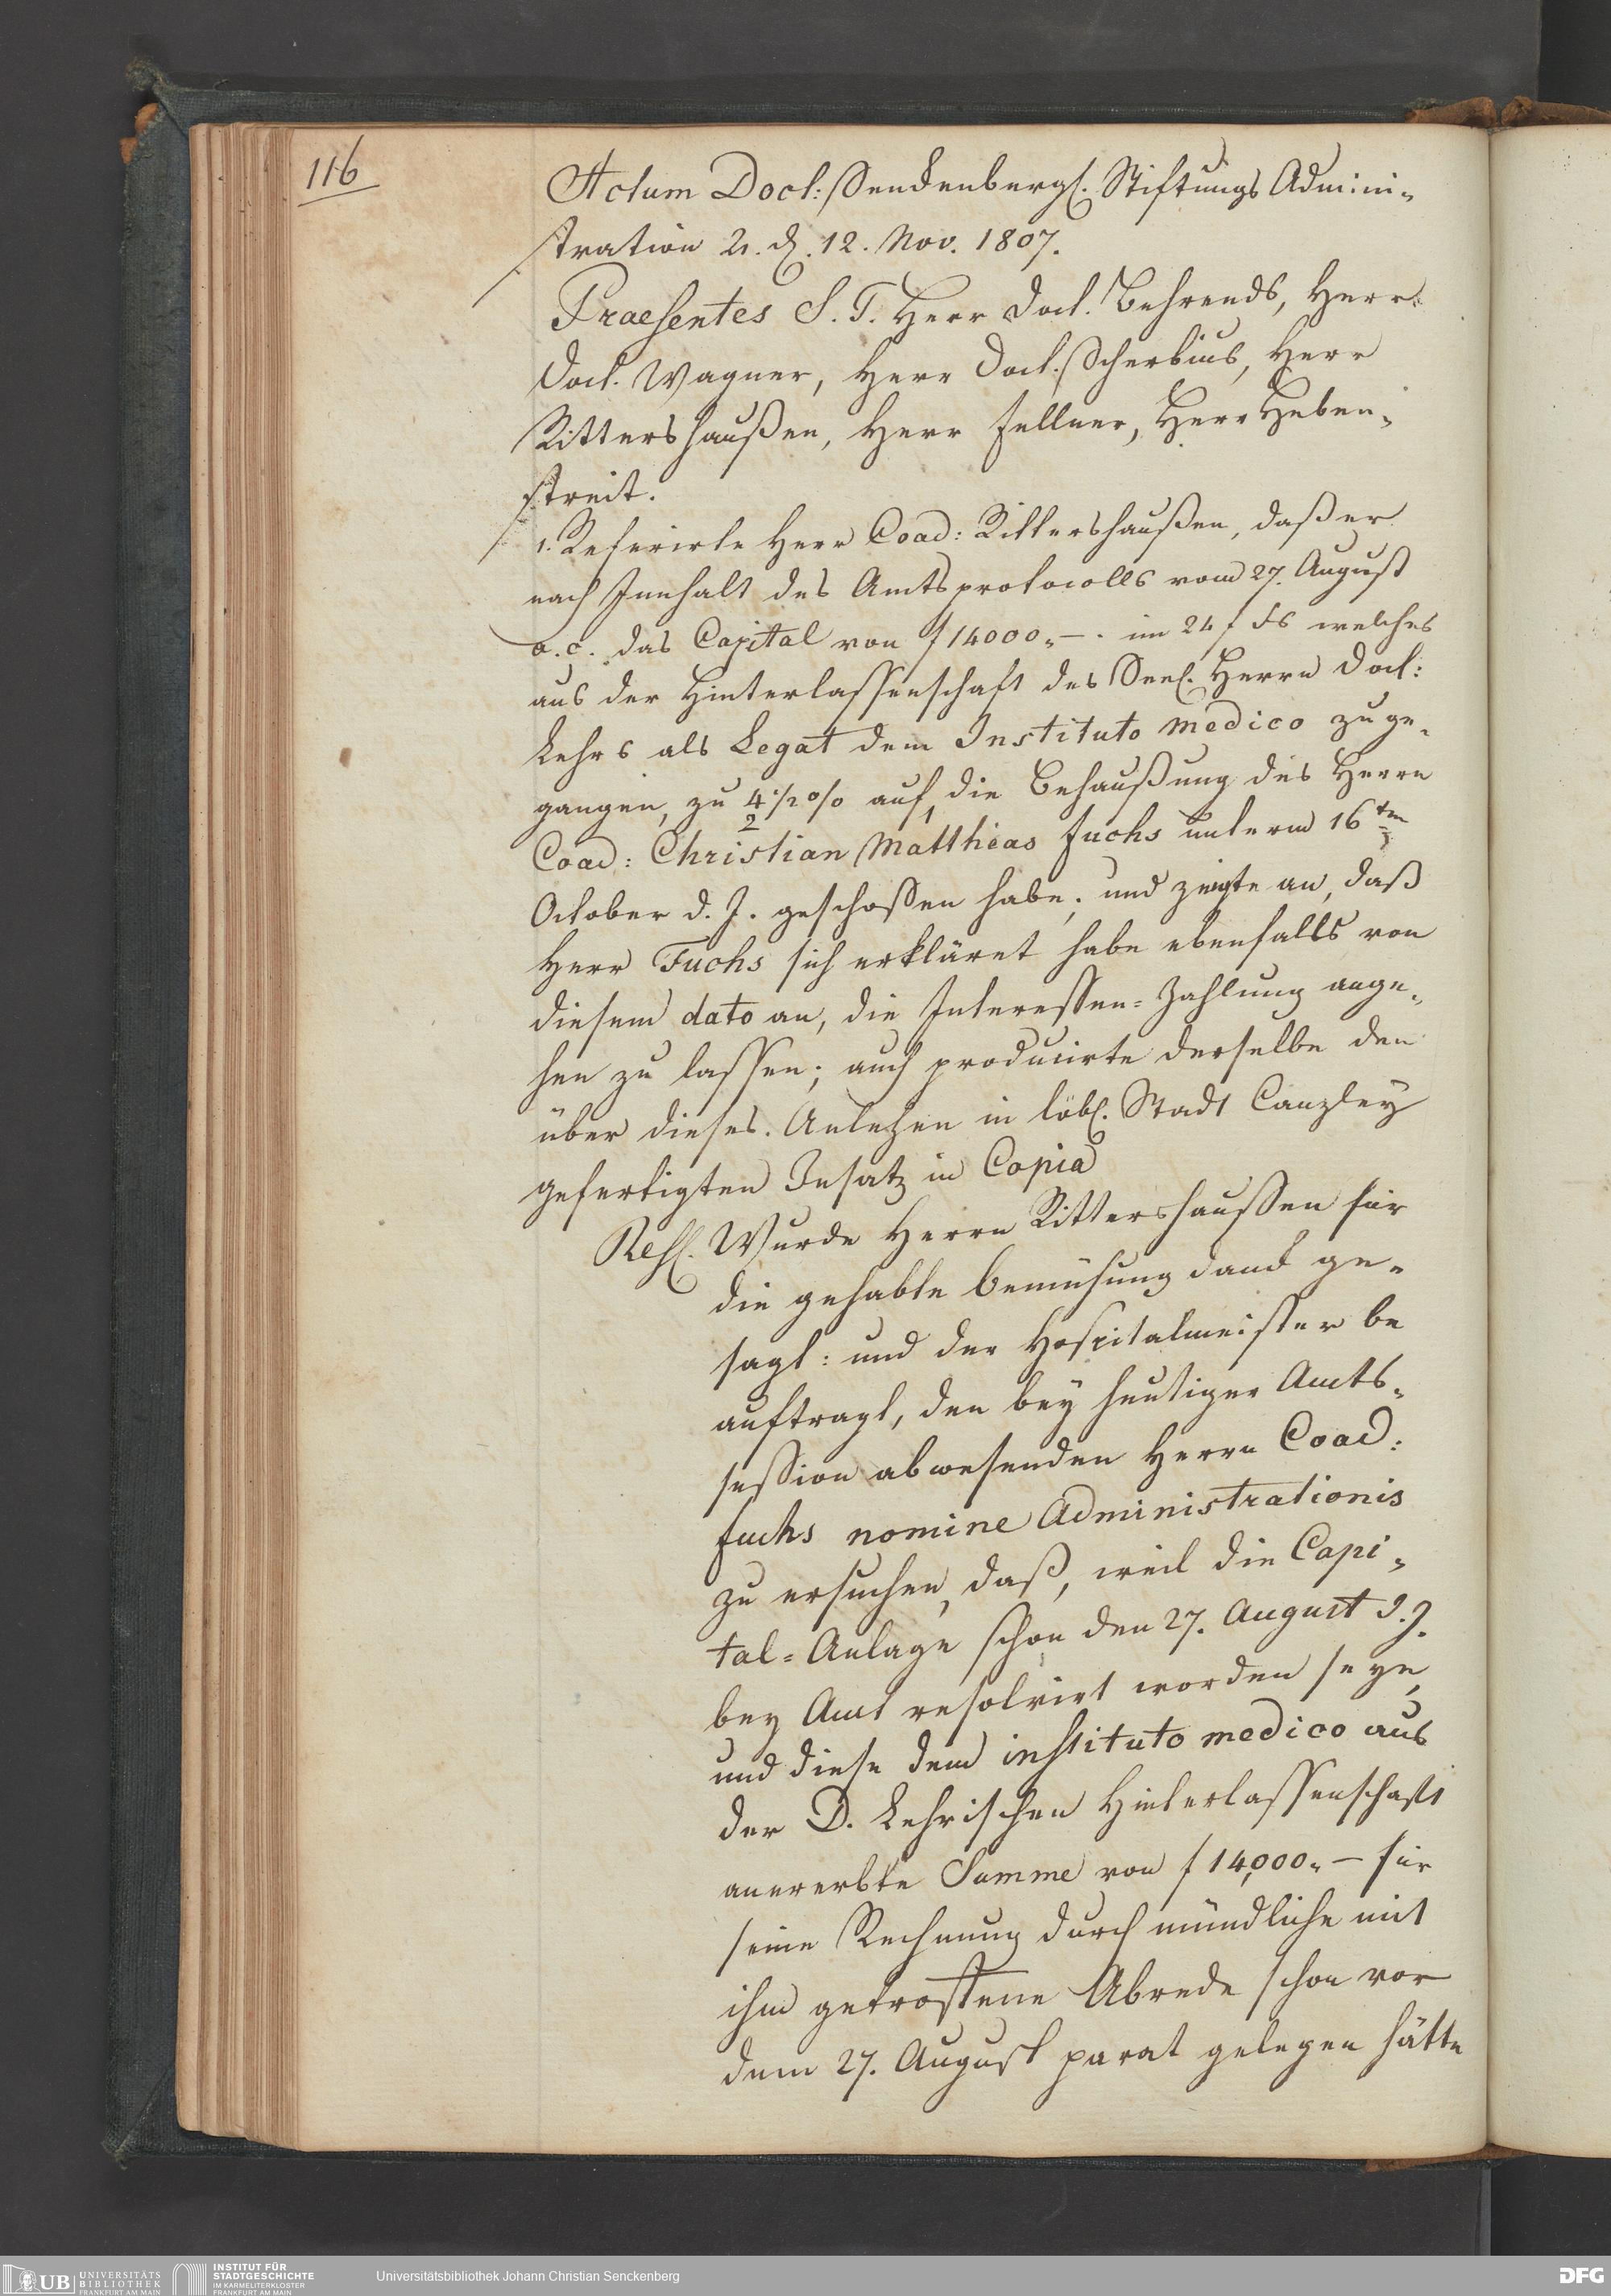 116
Actum Doct: Senckenbergl. Stiftungs Admini-
stration 24. d. 12. Nov. 1807.
Praesentes S. T. Herr Doct. Behrends, Herr
Doct. Wagner, Herr Doct. Scherbius, Herr
Rittershaußen, Herr Fellner, Herr Heben-
streit.
1. Referirte Herr Coad: Rittershaußen, daß er
nach Innhalt des Amtsprotocolls vom 27. August
a. c. das Capital von f 14000.– im 24 f Fs welches
aus der Hinterlassenschaft des Seel. Herrn Doct:
Lehrs als Legat dem Instituto medico zuge-
gangen, zu 4 1/2 % auf die Behaußung des Herrn
Coad: Christian Matthias Fuchs unterm 16ten
October d. J. geschossen habe; und zeigte an, daß
Herr Fuchs sich erkläret habe ebenfalls von
diesem dato an, die Interessen-Zahlung ange-
hen zu lassen; auch producirte derselbe den
über dieses Anlehen in löbl. Stadt Canzley
gefertigten Insatz in Copia
Resl. Wurde Herrn Rittershaussen für
die gehabte Bemühung danck ge-
sagt: und der Hospitalmeister be
auftragt, den bey heutiger Amts-
session abwesenden Herrn Coad:
Fuchs nomine Administrationis
zu ersuchen, daß, weil die Capi-
tal-Anlage schon den 27. August d. J.
bey Amt resolvirt worden seye,
und diese dem instituto medico aus
der D. Lehrischen Hinterlassenschaft
anererbte Summe von f 14,000.– für
seine Rechnung durch mündliche mit
ihm getroffene Abrede schon vor
dem 27. August parat gelegen hätte
UB UNIVERSITÄTS
BIBLIOTHEK
FRANKFURT AM MAIN
INSTITUT FÜR
STADTGESCHICHTE
IM KARMELITERKLOSTER
FRANKFURT AM MAIN
Universitätsbibliothek Johann Christian Senckenberg
DFG